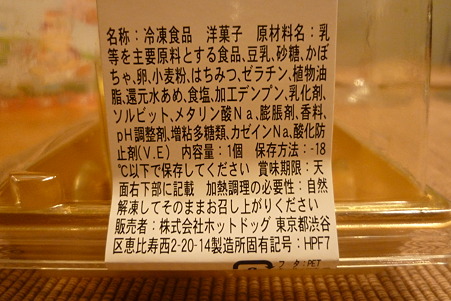 名称:冷凍食品 洋菓子 原材料名:乳
等を主要原料とする食品、豆乳、砂糖、かぼ
ちゃ、卵、小麦粉、はちみつ、ゼラチン、植物油
脂、還元水あめ、食塩、加工デンプン、乳化剤、
ソルビット、メタリン酸Na、膨脹剤、香料、
pH調整剤、増粘多糖類、カゼインNa、酸化防
止剤(V.E) 内容量:1個 保存方法:-18
℃以下で保存してください 賞味期限:天
面右下部に記載 加熱調理の必要性:自然
解凍してそのままお召し上がりください
販売者:株式会社ホットドッグ 東京都渋谷
区恵比寿西2-20-14製造所固有記号:HPF7
フタ:PET